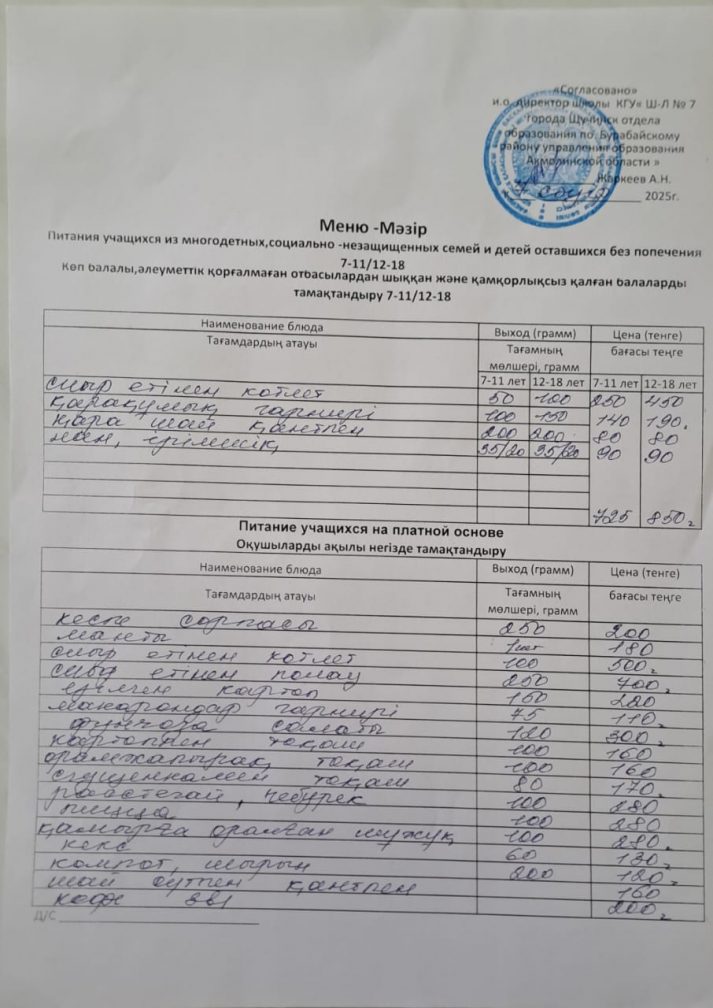 «Согласовано»
и.о. директор школы КГУ« Ш-Л № 7
города Щучинск отдела
образования по Бурабайскому
району управления образования
Акмолинской области »
Жаркеев А.Н.
2025г.
Меню -Мәзір
Питания учащихся из многодетных,социально -незащищенных семей и детей оставшихся без попечения
7-11/12-18
Көп балалы,әлеуметтік қорғалмаған отбасылардан шыққан және қамқорлықсыз қалған балаларды
тамақтандыру 7-11/12-18
Наименование блюда Выход (грамм) Цена (тенге)
Тағамдардың атауы Тағамның мөлшері, грамм бағасы теңге
7-11 лет 12-18 лет 7-11 лет 12-18 лет
сиыр етінен котлет 50 100 250 450
қарақұмық гарнирі 100 150 140 190.
қара шай қантпен 200 200 80 80
нан, ірімшік 35/20 35/20 90 90
725 850
Питание учащихся на платной основе
Оқушыларды ақылы негізде тамақтандыру
Наименование блюда Выход (грамм) Цена (тенге)
Тағамдардың атауы Тағамның мөлшері, грамм бағасы теңге
кеспе сорпасы 250 200
манты 1шт 180
сиыр етінен котлет 100 500
сиыр етінен полау 250 700
езілген картоп 150 220
макарондар гарнирі 75 110
фунчоза салаты 120 300
картоппен тоқаш 100 160
орамжапырақ тоқаш 100 160
сгущенкамен тоқаш 80 170
расстегай, чебурек 100 280
пицца 100 280
қамырға оралған шұжық 100 280
кекс 60 130
компот, шырын 200 120
шай сүтпен қантпен 160
кофе 3в1 200
Д/С